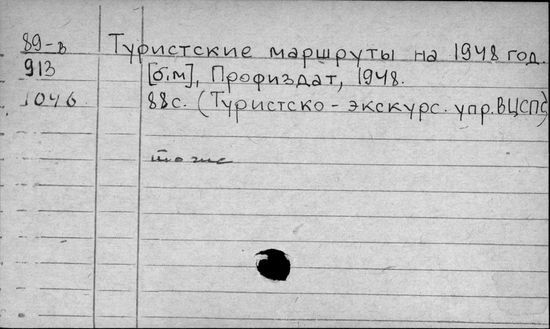 89-в Туристские маршруты на 1948 год.
913 [б.м], Профиздат, 1948.
1046 88с. (Туристско-экскурс. упр. ВЦСПС)
то же